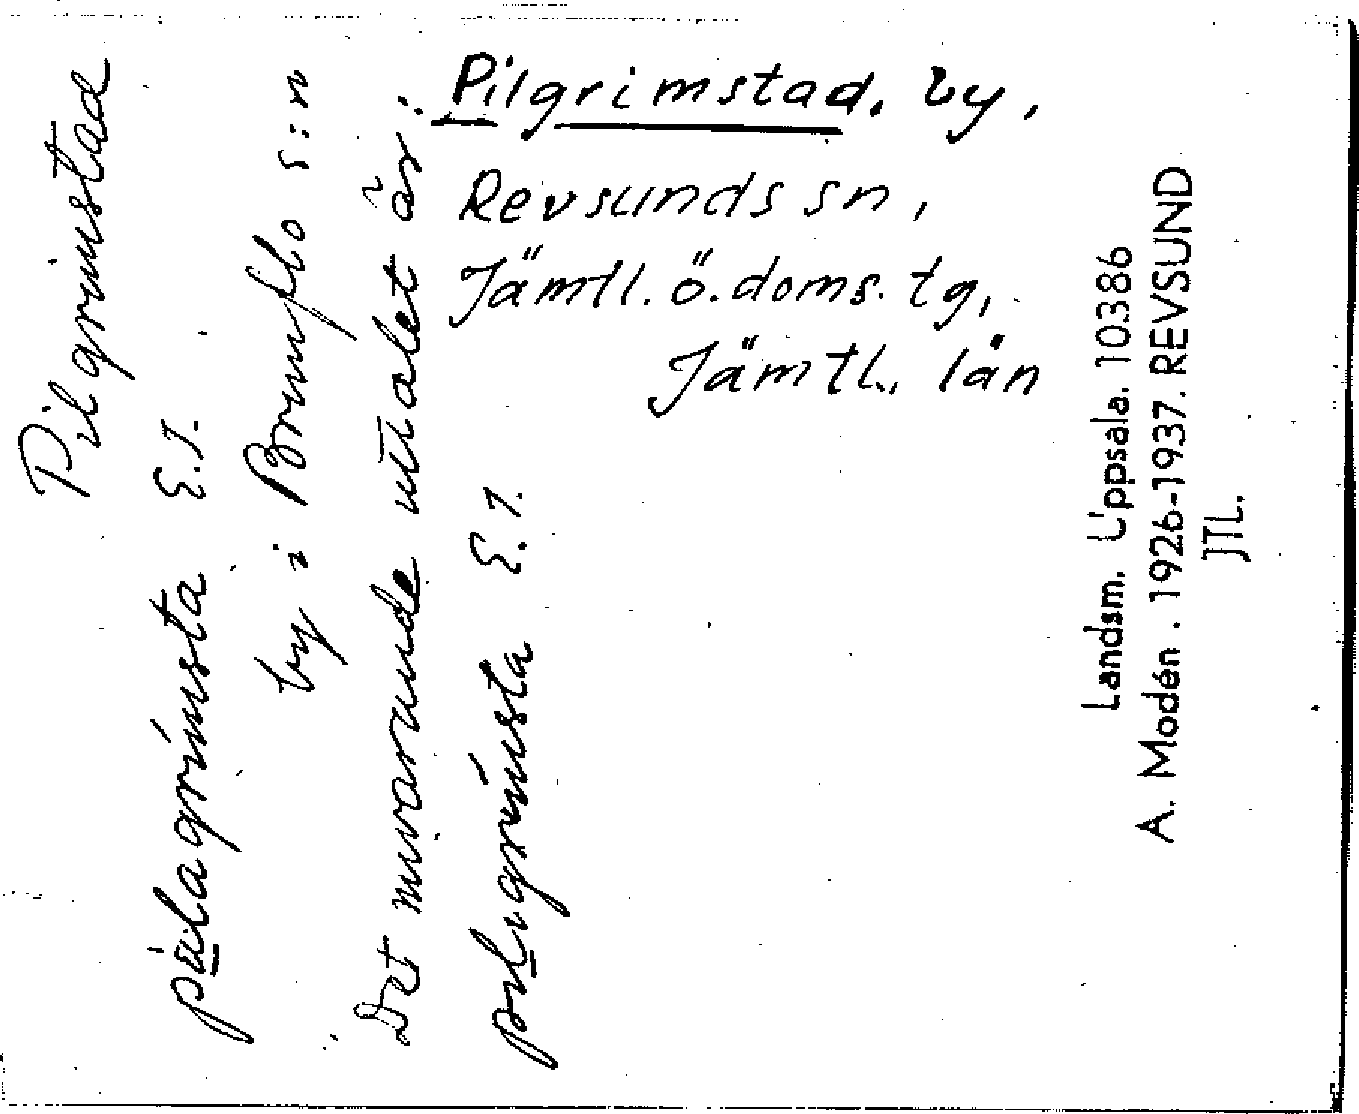 Pilgrimstad, by,
Revsunds sn,
Jämtl. ö. doms. tg,
Jämtl. län
Pilgrimstad
E.I.
by i Brunflo s:n
Det nuvarande uttalet är:
E.I.
Landsm. Uppsala. 10386
A. Modén. 1926-1937. REVSUND
JTL.